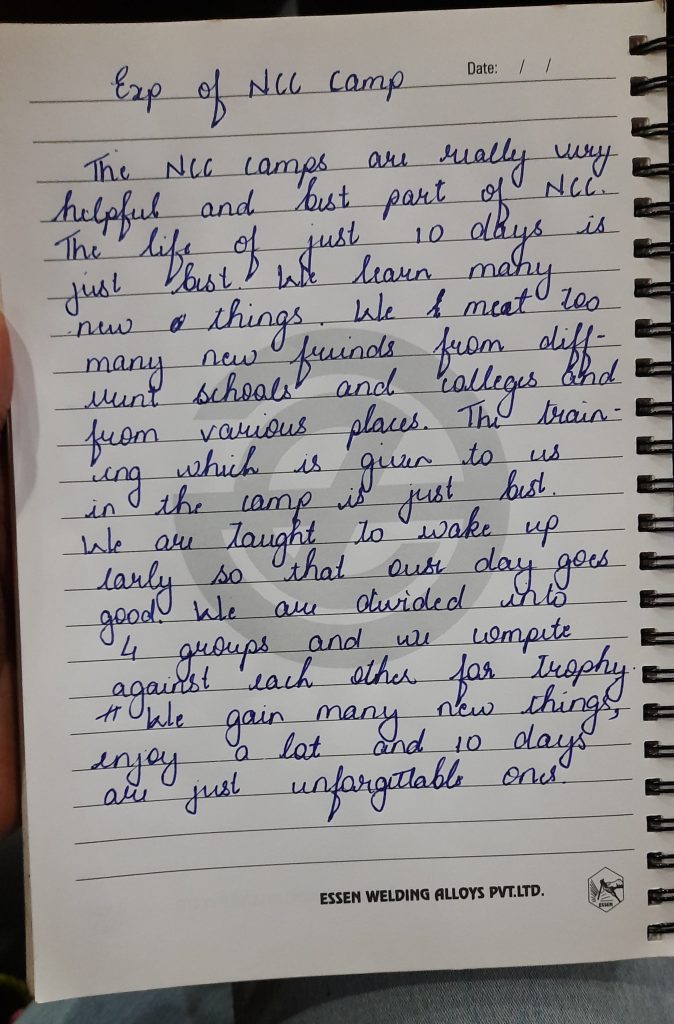 Exp of NCC Camp
Date: / /
The NCC camps are really very
helpful and best part of NCC.
The life of just 10 days is
just best. We learn many
new things. We meet too
many new friends from diff-
erent schools and colleges and
from various places. The train-
ing which is given to us
in the camp is just best.
We are taught to wake up
early so that our day goes
good. We are divided into
4 groups and we compete
against each other for trophy.
# We gain many new things,
enjoy a lot and 10 days
are just unforgettable ones.
ESSEN WELDING ALLOYS PVT.LTD.
ESSEN